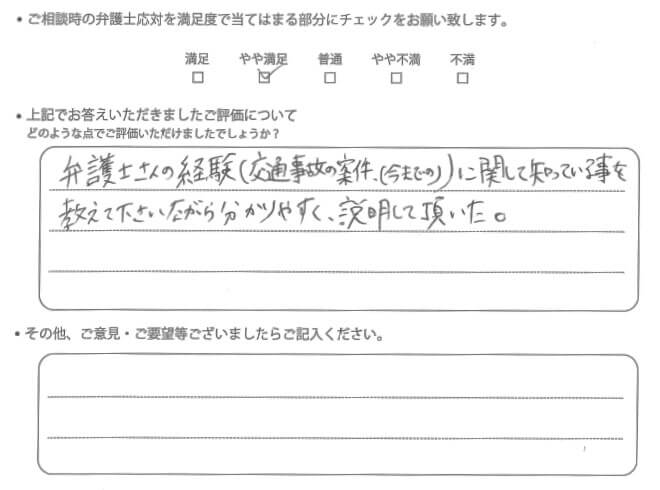 • ご相談時の弁護士応対を満足度で当てはまる部分にチェックをお願い致します。
満足 やや満足 普通 やや不満 不満
□ ☑ □ □ □
• 上記でお答えいただきましたご評価について
どのような点でご評価いただけましたでしょうか？
弁護士さんの経験(交通事故の案件、(今までの))に関して知っている事を
教えて下さいながら分かりやすく、説明して頂いた。
• その他、ご意見・ご要望等ございましたらご記入ください。